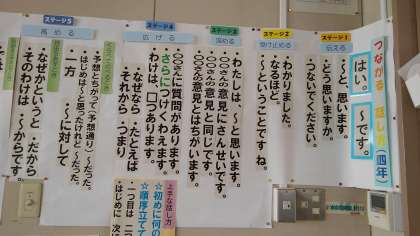 つながる 話し方(四年)
はい。 ~です。
ステージ1
伝える
~と 思います。
どう思いますか。
つないでください。
ステージ2
受け止める
わかりました。
なるほど。
~ということですね。
ステージ3
深める
わたしは、~と思います。
〇〇さんの意見にさんせいです。
〇〇さんの意見と同じです。
〇〇さんの意見とはちがいます。
ステージ4
広げる
〇〇さんに質問があります。
さらにつけくわえます。
わけは、□つあります。
なぜなら・たとえば
それから・つまり
ステージ5
高める
予想とちがって(予想通り)~だった。
はじめは~と思ったけれど~だった。
一方 ~に対して
なぜかというと・だから
そのわけは ~からです。
上手な話し方
☆初めに何の
☆順序立てて
一つ目は 二つ
はじめに 次に